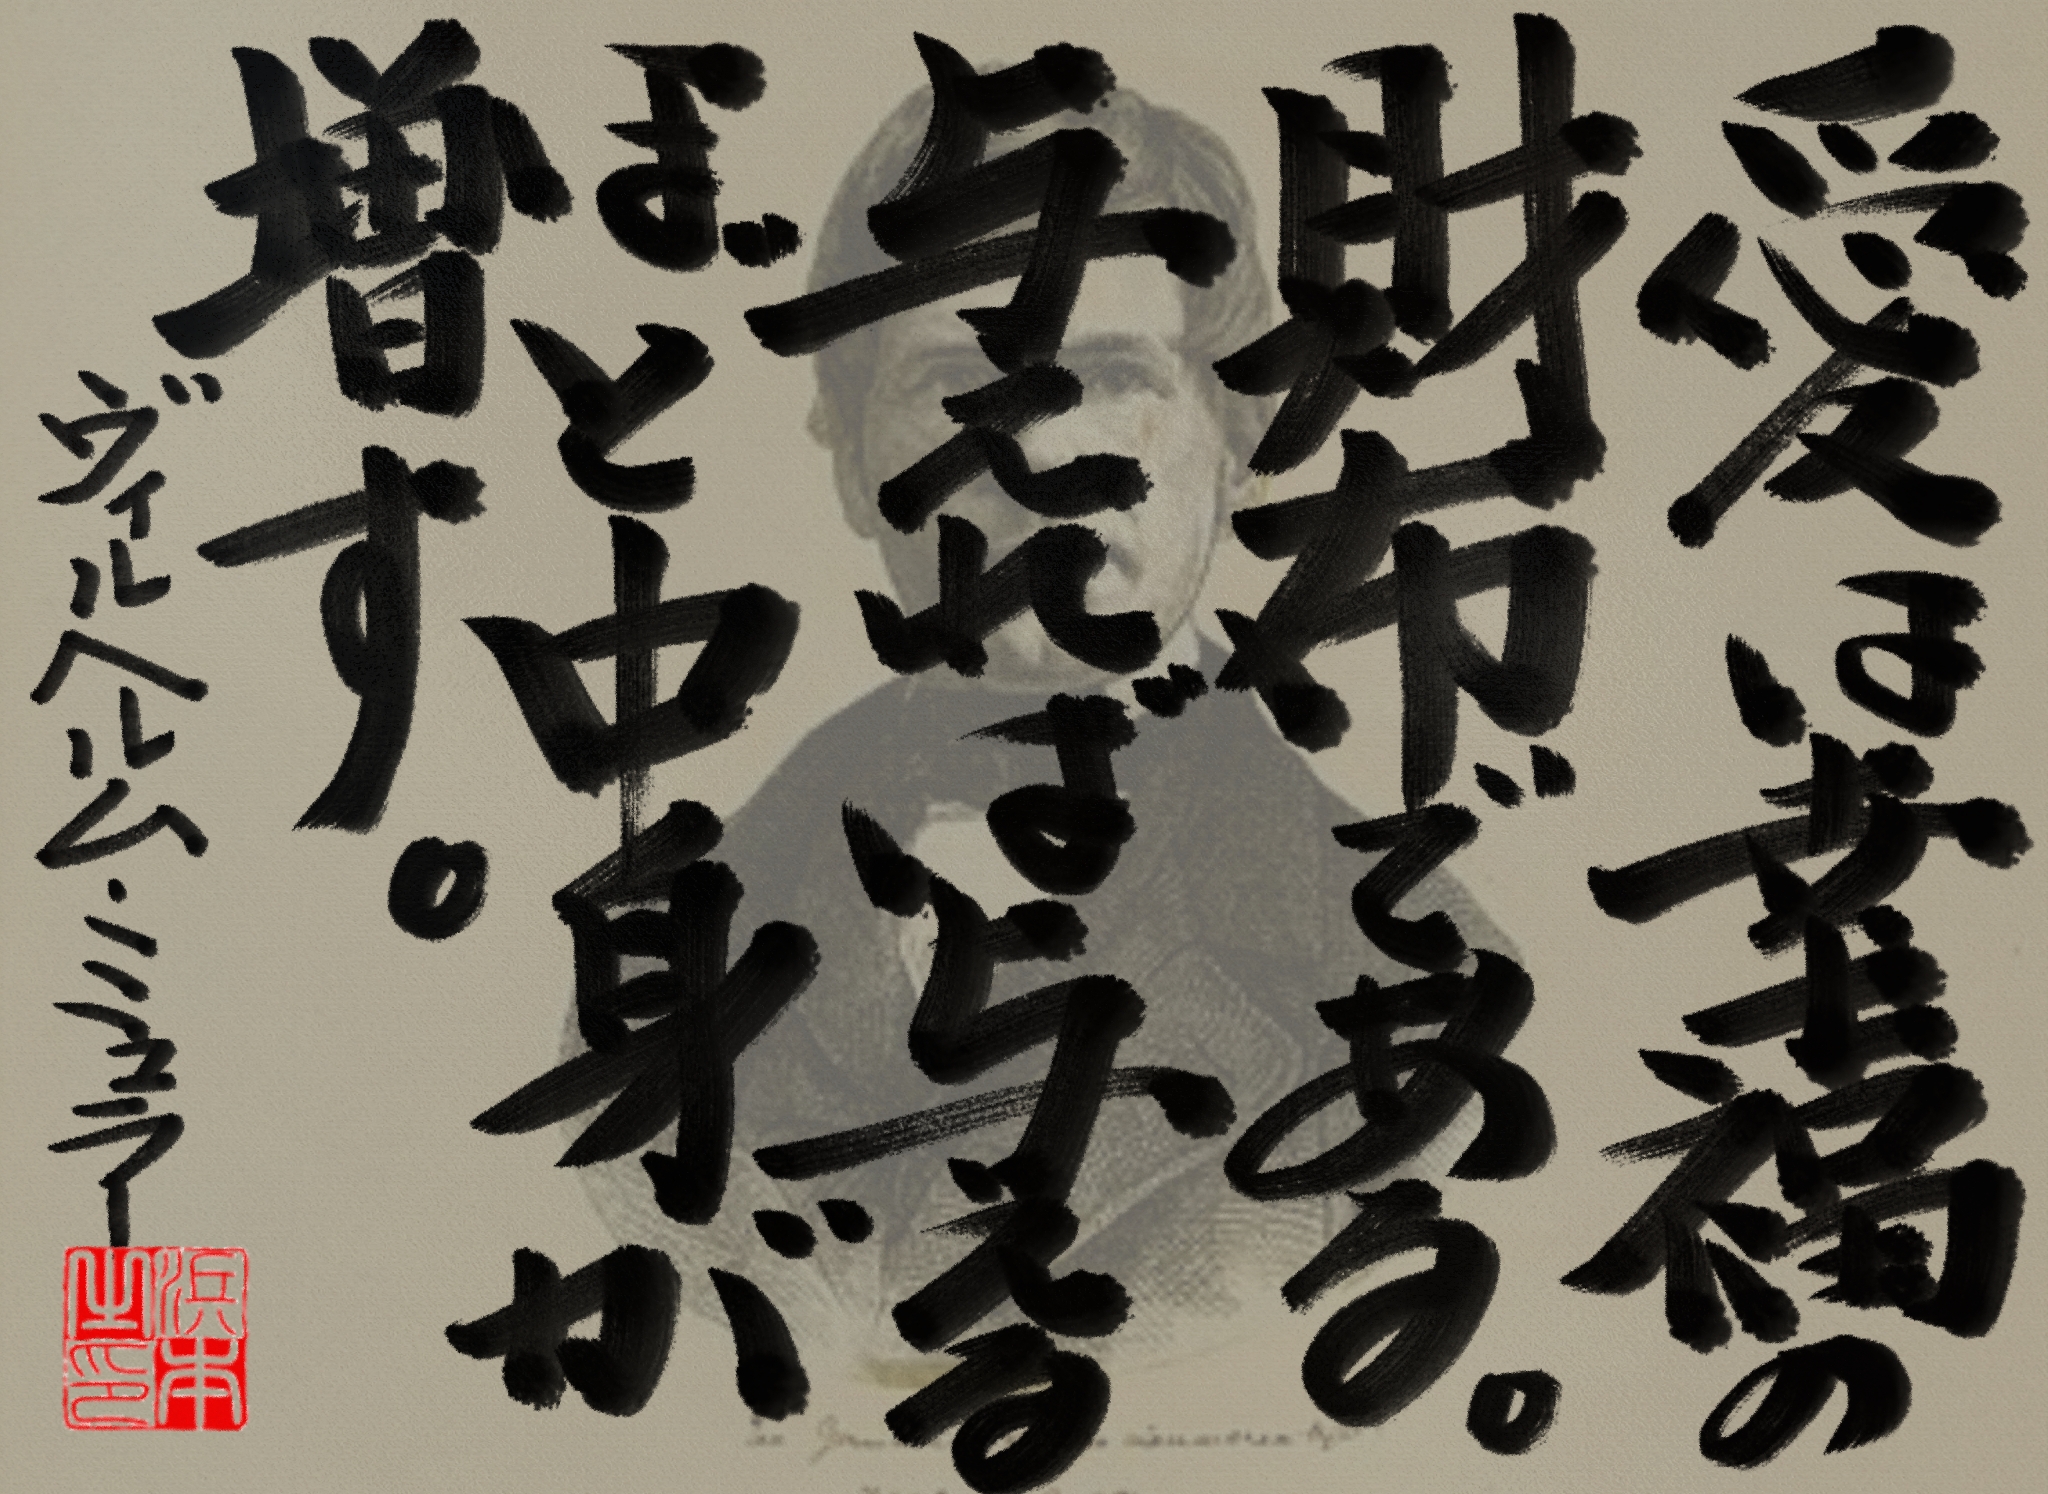 愛は幸福の
財布である。
与えれば与える
ほど中身が
増す。
ヴィルヘルム・ミュラー
浜本之印